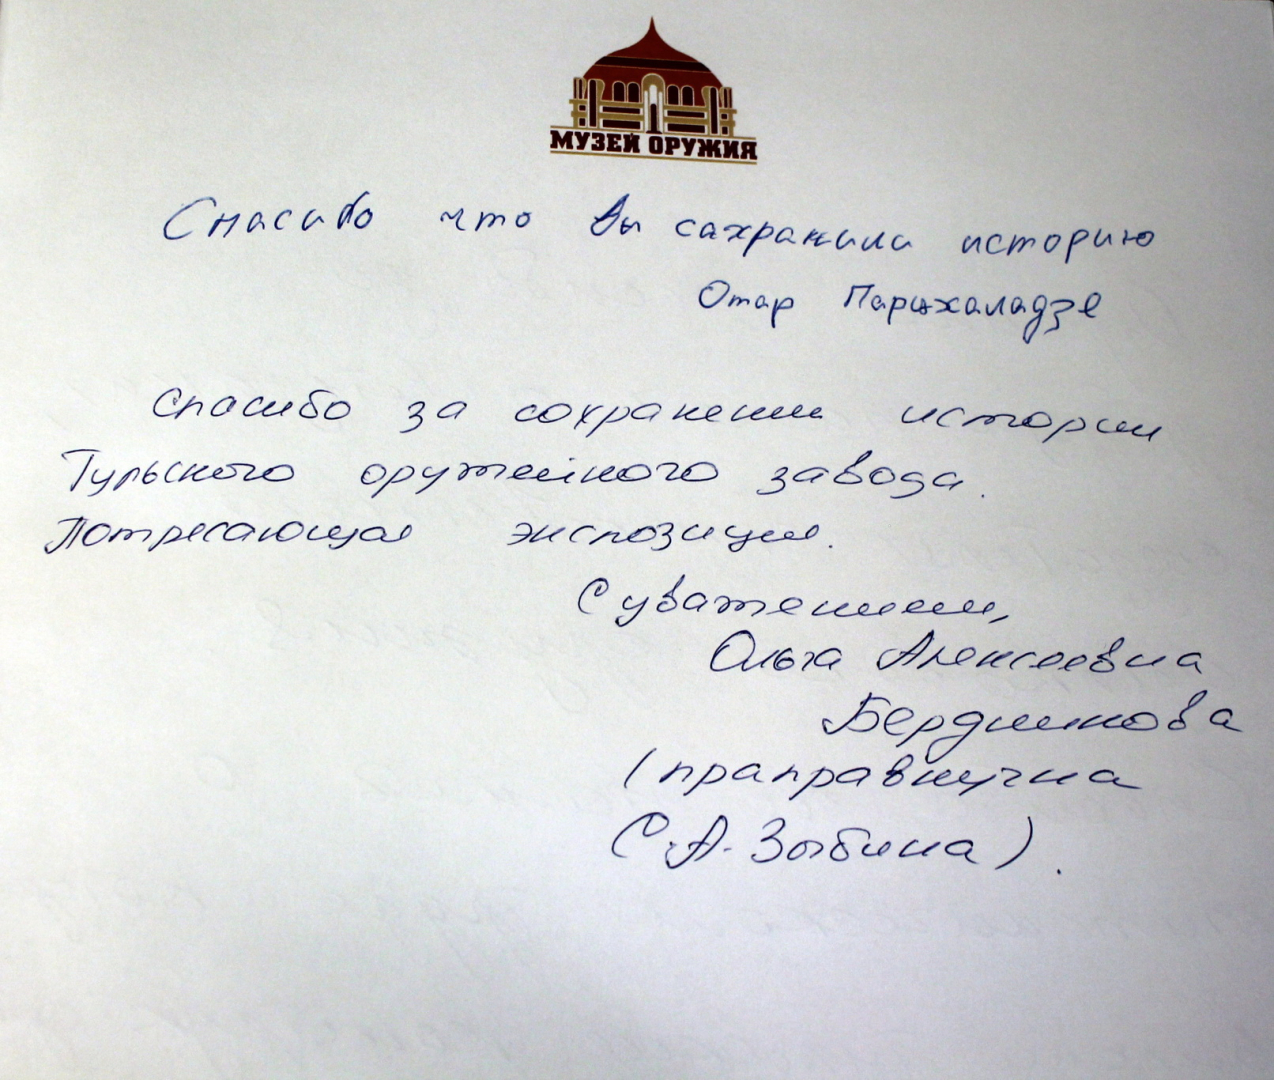 МУЗЕЙ ОРУЖИЯ
Спасибо что Вы сахранили историю
Отар Парцхаладзе
Спасибо за сохранении истории
Тульского оружейного завода.
Потресающая экспозиция.
С уважением,
Ольга Алексеевна
Бердникова
(праправнучка
С.А. Зыбина).